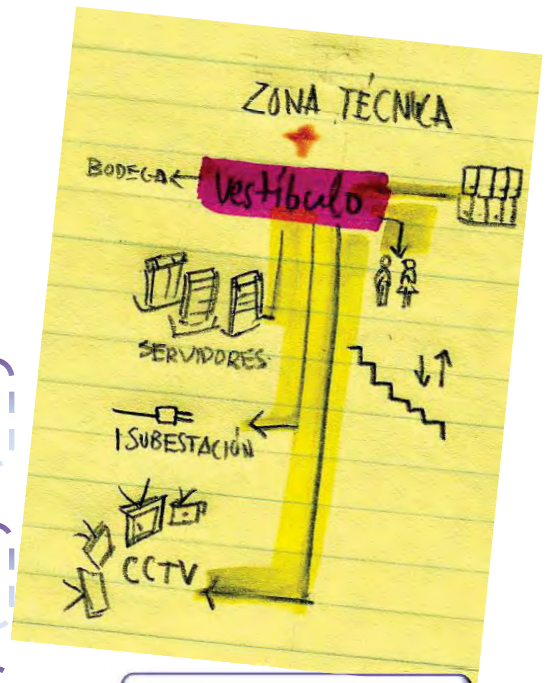 ZONA TÉCNICA
BODEGA
Vestíbulo
SERVIDORES
SUBESTACIÓN
CCTV